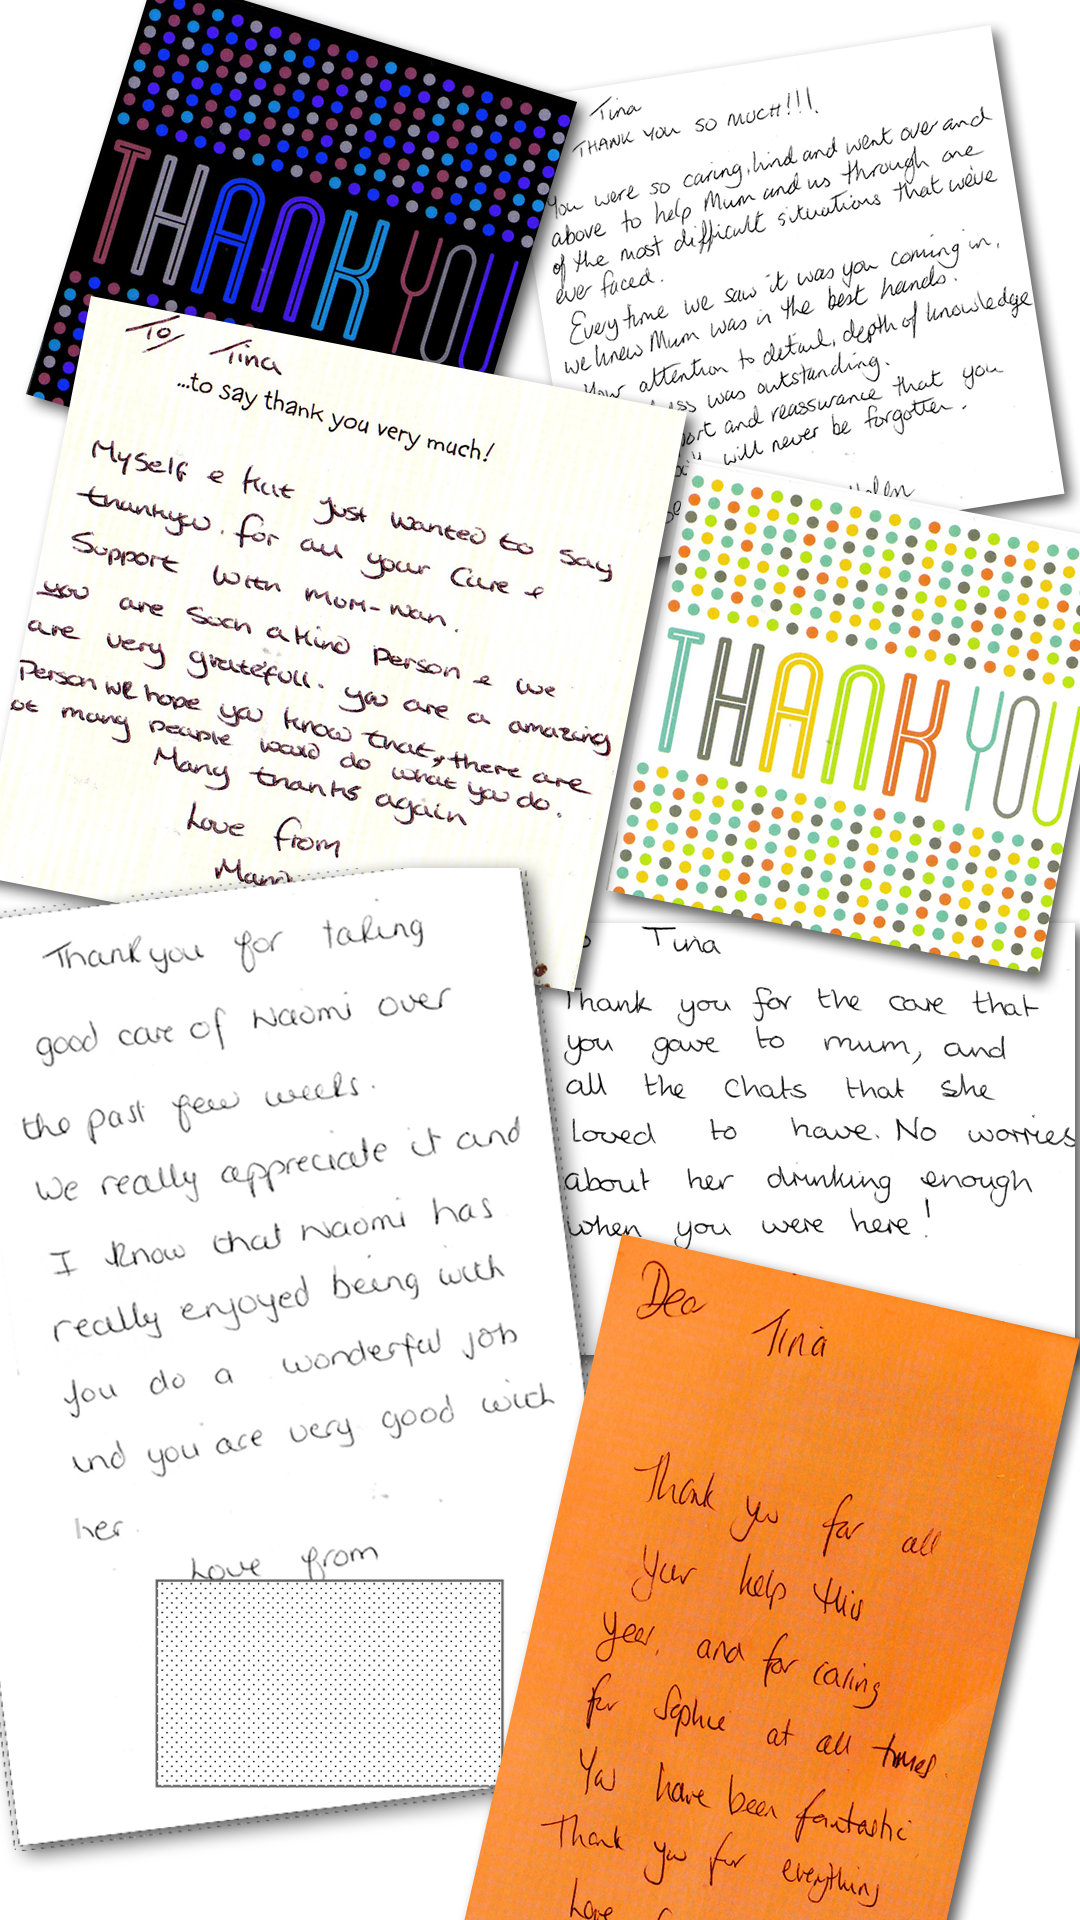 THANK YOU
Tina
THANK YOU SO MUCH!!!
You were so caring, kind and went over and
above to help Mum and us through one
of the most difficult situations that we've
ever faced.
Every time we saw it was you coming in,
we knew Mum was in the best hands.
Your attention to detail, depth of knowledge
was outstanding.
and reassurance that you
will never be forgotten.
To Tina
...to say thank you very much!
Myself & Kat just wanted to say
thankyou. for all your Care &
Support with mom-nan.
you are Such a kind person & we
are very gratefull. you are a amazing
Person we hope you know that, there are
ot many people would do what you do.
Many thanks again
Love from
THANK YOU
Thankyou for taking
good care of Naomi over
the past few weeks.
We really appreciate it and
I know that Naomi has
really enjoyed being with
you do a wonderful job
and you are very good with
her
Love from
Tina
Thank you for the care that
you gave to mum, and
all the chats that she
loved to have. No worries
about her drinking enough
when you were here!
Dear
Tina
Thank you for all
your help this
year, and for caring
for Sophie at all times.
You have been fantastic
Thank you for everything
Love